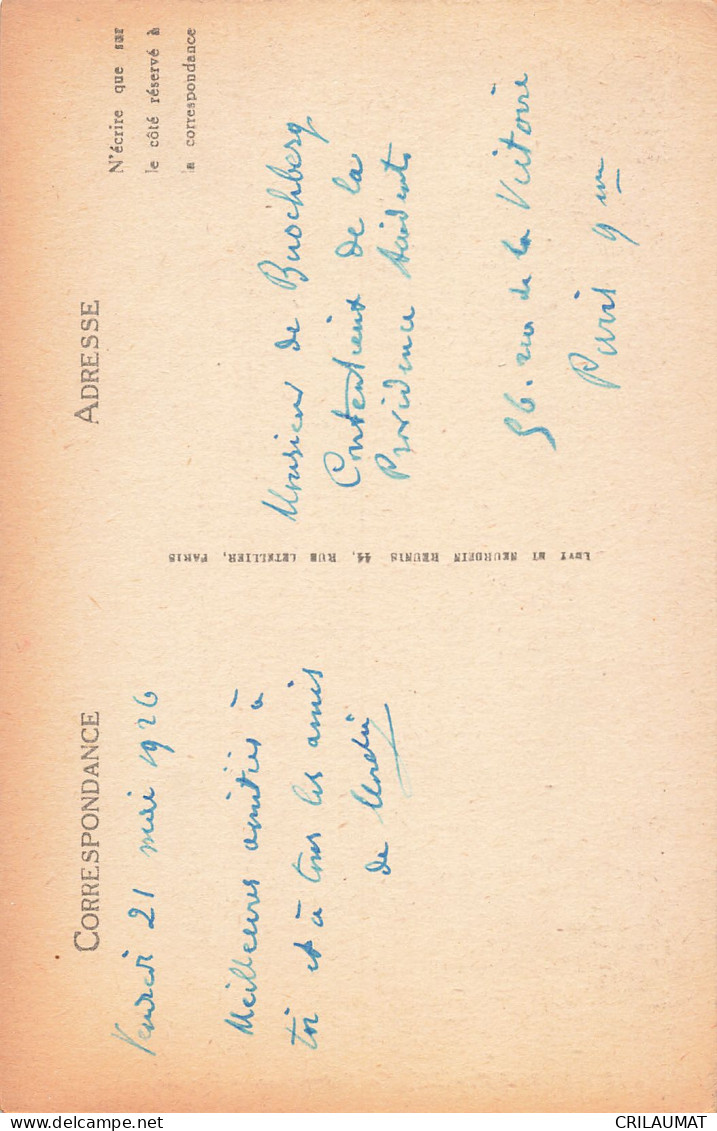 CORRESPONDANCE
Vendredi 21 mai 1926
Meilleures amitiés à
toi et à tous les amis
de
LEVY ET NEURDEIN REUNIS 44, RUE LETELLIER, PARIS
ADRESSE
N'écrire que sur
le côté réservé à
la correspondance
Monsieur de Buschberg
Contentieux de la
Providence Accidents
56. rue de la Victoire
Paris 9 em
CRILAUMAT